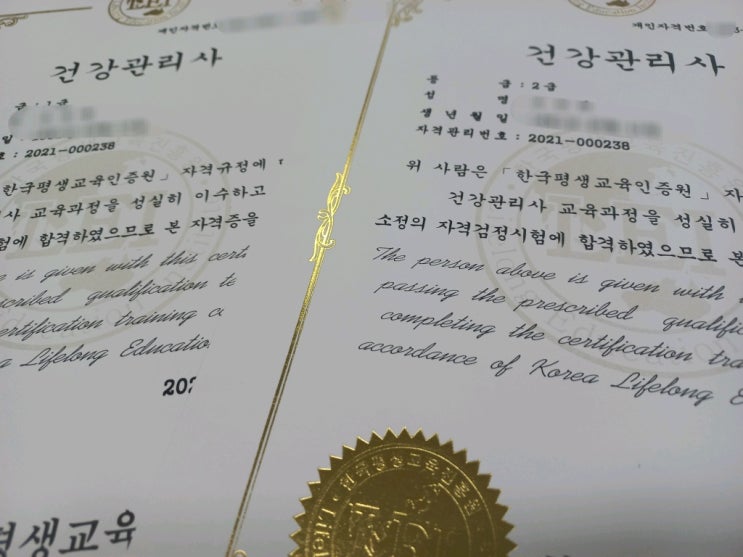 건강관리사
급 : 1급
: 2021-000238
한국평생교육인증원」 자격규정에
사 교육과정을 성실히 이수하고
험에 합격하였으므로 본 자격증을
is given with this cert
scribed qualification te
certification training co
Lifelong Education
202
평생교육
개인자격번호
건강관리사
등 급 : 2급
성 명
생년월일
자격관리번호 : 2021-000238
위 사람은 「한국평생교육인증원」 자
건강관리사 교육과정을 성실히
소정의 자격검정시험에 합격하였으므로 본
The person above is given with
passing the prescribed qualific
completing the certification tra
accordance of Korea Lifelong E